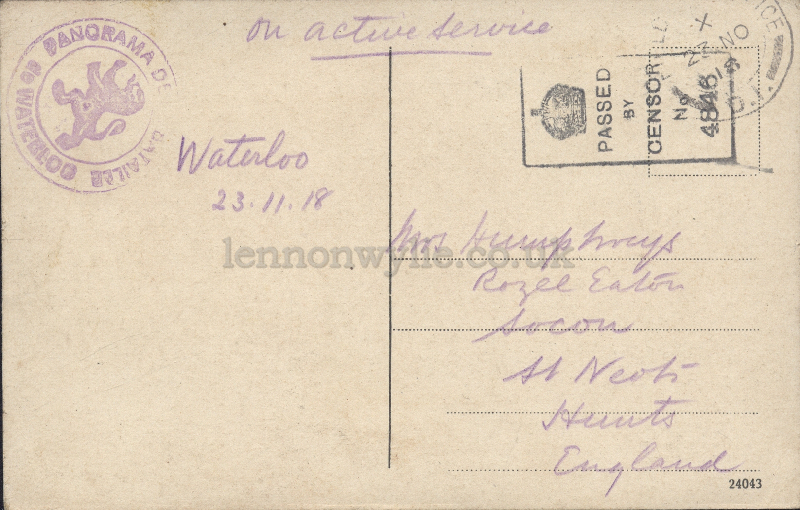 on active service
PANORAMA DE
BATAILLE
de WATERLOO
X
NO
18
PASSED
BY
CENSOR
No
4846
Waterloo
23.11.18
Mrs Humphreys
Rozel Eaton
Socon
St Neots
Hunts
England
lennonwylie.co.uk
24043